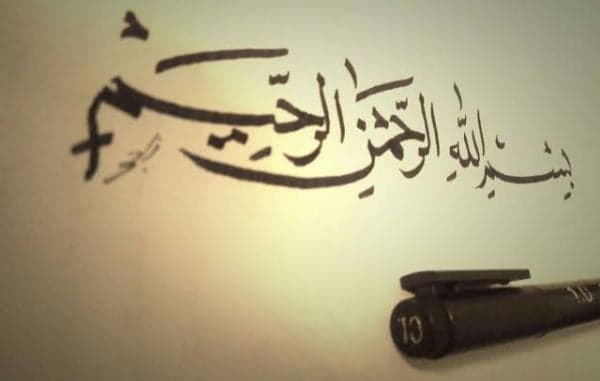 بِسْمِ اللهِ الرَّحْمٰنِ الرَّحِيْمِ
10
1.0